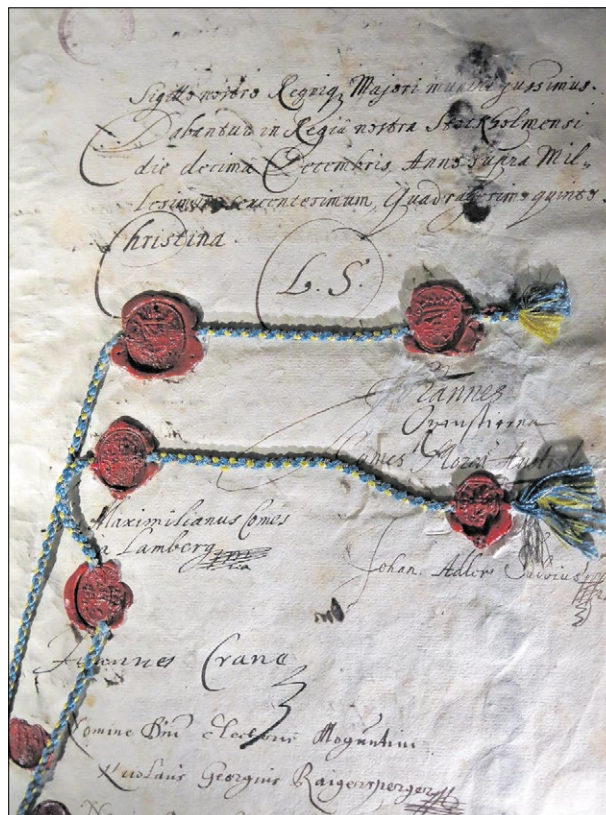 Sigillo nostro Regniq₃ Majori muniri jussimus.
Dabantur in Regiâ nostra Stockholmensi
die decima Decembris, Anno supra Mil-
lesimum sexcentesimum, Quadragesimo quinto.
Christina.
L. S.
Johannes
Oxenstierna
Comes Moreæ Austral
Maximilianus Comes
a Lamberg
Johan. Adler Salvius
Joannes Crane
Nomine Dni Electoris Moguntini
Nicolaus Georgius Raigersperger